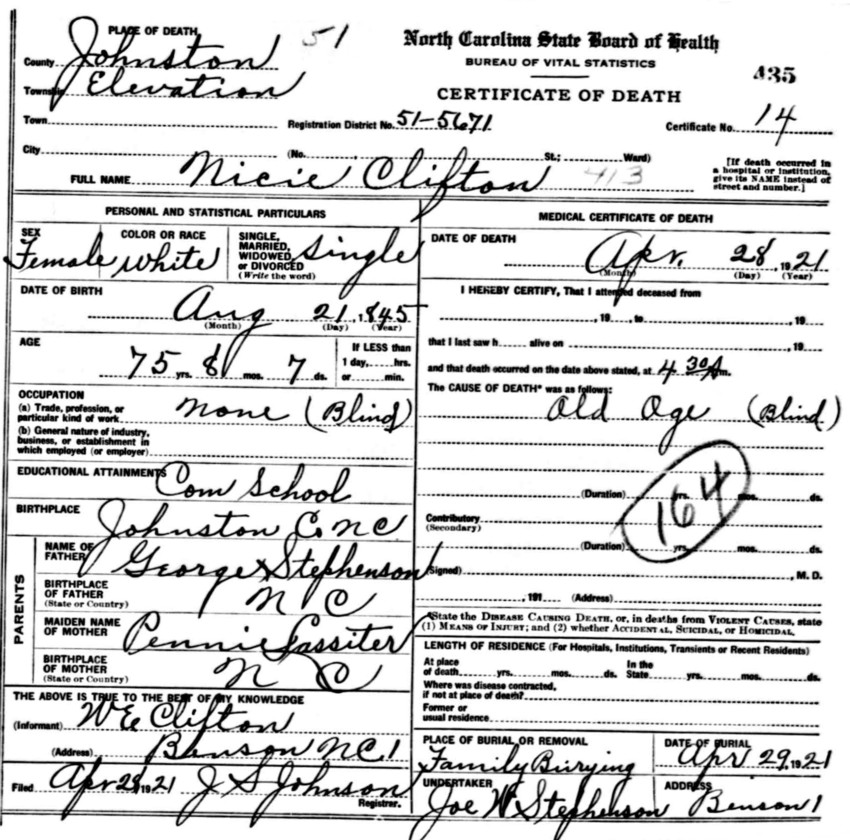 PLACE OF DEATH 51
County Johnston
Township Elevation
Town
City
North Carolina State Board of Health
BUREAU OF VITAL STATISTICS
435
CERTIFICATE OF DEATH
Registration District No. 51-5671 Certificate No. 14
(No. St.; Ward)
[If death occurred in a hospital or institution, give its NAME instead of street and number.]
FULL NAME Nicie Clifton 413
PERSONAL AND STATISTICAL PARTICULARS
SEX Female
COLOR OR RACE White
SINGLE, MARRIED, WIDOWED, or DIVORCED (Write the word) Single
DATE OF BIRTH
Aug 21, 1845
(Month) (Day) (Year)
AGE
75 yrs. 8 mos. 7 ds.
If LESS than 1 day, hrs. or min.
OCCUPATION
(a) Trade, profession, or particular kind of work None (Blind)
(b) General nature of industry, business, or establishment in which employed (or employer)
EDUCATIONAL ATTAINMENTS Com School
BIRTHPLACE Johnston C. NC
PARENTS
NAME OF FATHER George Stephenson
BIRTHPLACE OF FATHER (State or Country) N C
MAIDEN NAME OF MOTHER Pennie Lassiter
BIRTHPLACE OF MOTHER (State or Country) N C
THE ABOVE IS TRUE TO THE BEST OF MY KNOWLEDGE
(Informant) W E Clifton
(Address) Benson NC 1
Filed Apr 28 1921 J S Johnson
Registrer.
MEDICAL CERTIFICATE OF DEATH
DATE OF DEATH
Apr. 28, 1921
(Month) (Day) (Year)
I HEREBY CERTIFY, That I attended deceased from
, 19 , to , 19
that I last saw h alive on 19
and that death occurred on the date above stated, at 4 30 A m.
The CAUSE OF DEATH* was as follows:
Old Age (Blind)
164
(Duration) yrs. mos. ds.
Contributory
(Secondary)
(Duration) yrs. mos. ds.
(Signed) , M. D.
, 191 (Address)
*State the DISEASE CAUSING DEATH, or, in deaths from VIOLENT CAUSES, state
(1) MEANS OF INJURY; and (2) whether ACCIDENTAL, SUICIDAL, OR HOMICIDAL.
LENGTH OF RESIDENCE (For Hospitals, Institutions, Transients or Recent Residents)
At place of death yrs. mos. ds. In the State yrs. mos. ds.
Where was disease contracted, if not at place of death?
Former or usual residence
PLACE OF BURIAL OR REMOVAL Family Burying
DATE OF BURIAL Apr 29, 1921
UNDERTAKER Joe W Stephenson
ADDRESS Benson 1